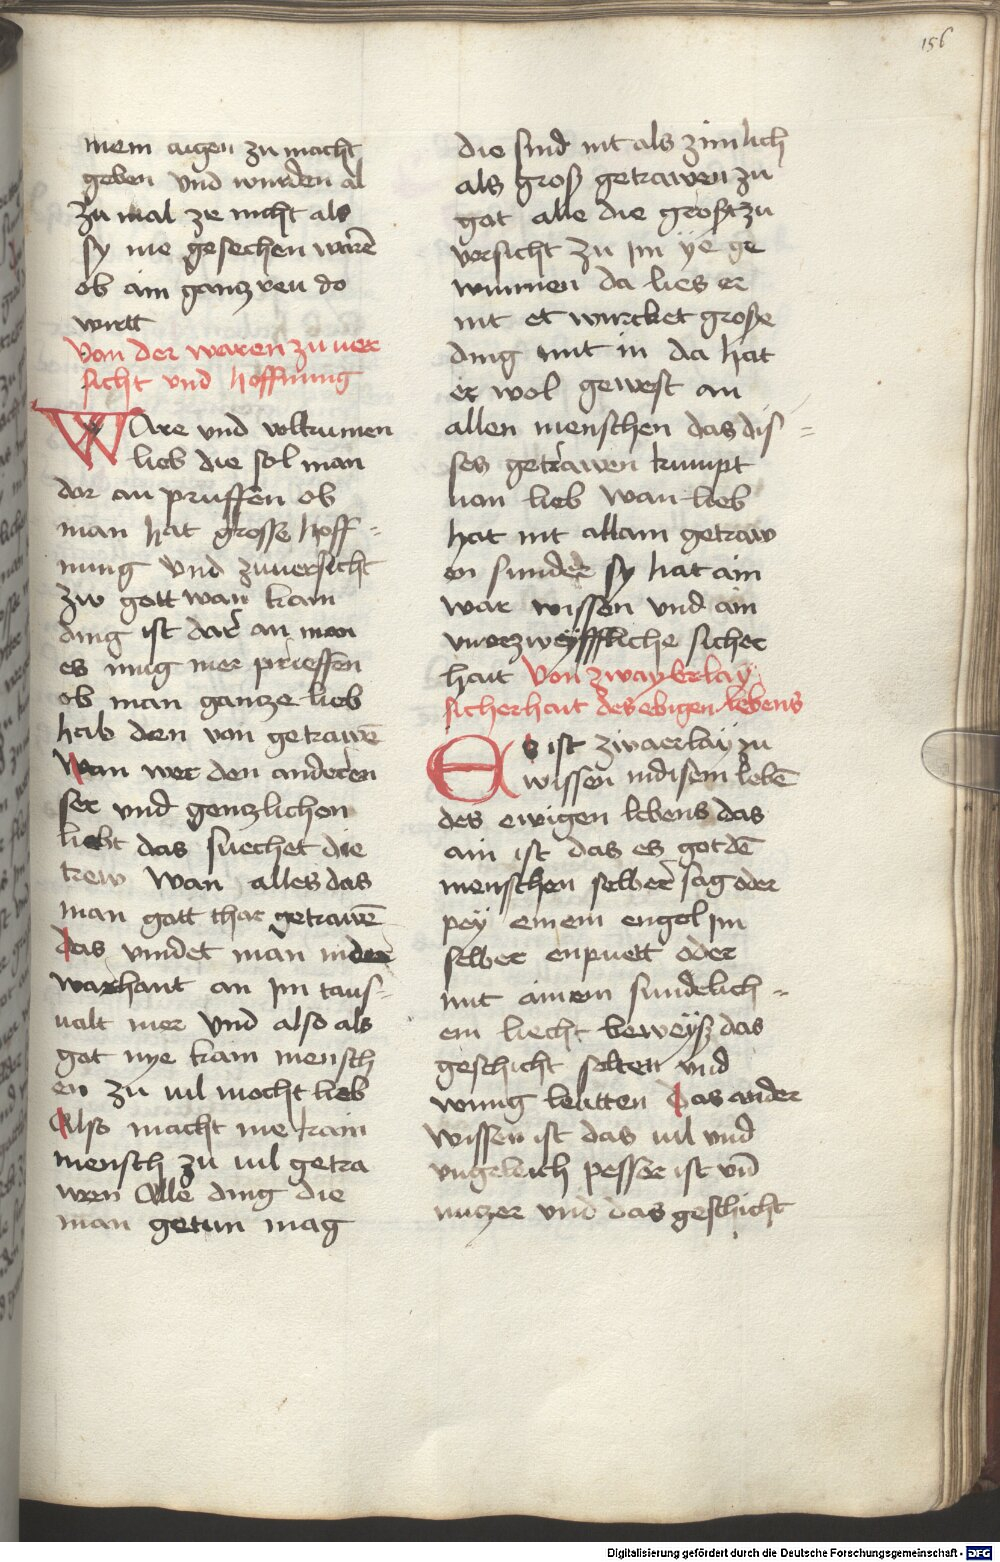 156
mem aigen zu macht
geben vnd wurden al
zu mal ze nicht als
sy nie gesechen warē
ob ain gantz reu do
wirtt
Von der waren zu uer
sicht vnd hoffnung
WAre vnd volkumen
lieb die sol man
dor an pruffen ob
man hat grosse hoff-
nung vnd zuuersicht
zw gott wan kain
ding ist dar an man
es mug mer prieffen
ob man gantze lieb
hab den von getrawē
Wan wer den anderen
ser vnd gentzlichen
liebt das suechet die
trew Wan alles das
man gott thar getrawē
das vindet man in der
warhait an im taus-
ualt mer Vnd also als
got nye kain mensch
en zu uil mocht lieb
Also macht nie kain
mensch zu uil getra
wen Alle ding die
man getun mag
die sind nit als zimlich
als groß getrawen zu
got alle die großt zu
versicht zu im ÿe ge
wunnen da lies er
nit et wurcket große
ding mit in da hat
er wol gewest an
allen menschen das dis=
ses getrawen kumpt
uon lieb wan lieb
hat nit allain getraw
en sunder sy hat ain
war wissen vnd ain
vnverzweyfffliche sicher
hait Von zwayerlay
sicherhait des ebigen lebens
Es ist zwaerlay zu
wissen in disem lebē
des ewigen lebens das
ain ist das es got dē
menschen selber sag oder
pey einem engel im
selber enpuett oder
mit ainem sunderlich-
em liecht beweyß das
geschicht selten vnd
wenig leutten Das ander
wissen ist das uil vnd
vngeleich pesser ist vn̄
nutzer vnd das geschicht
Digitalisierung gefördert durch die Deutsche Forschungsgemeinschaft - DFG